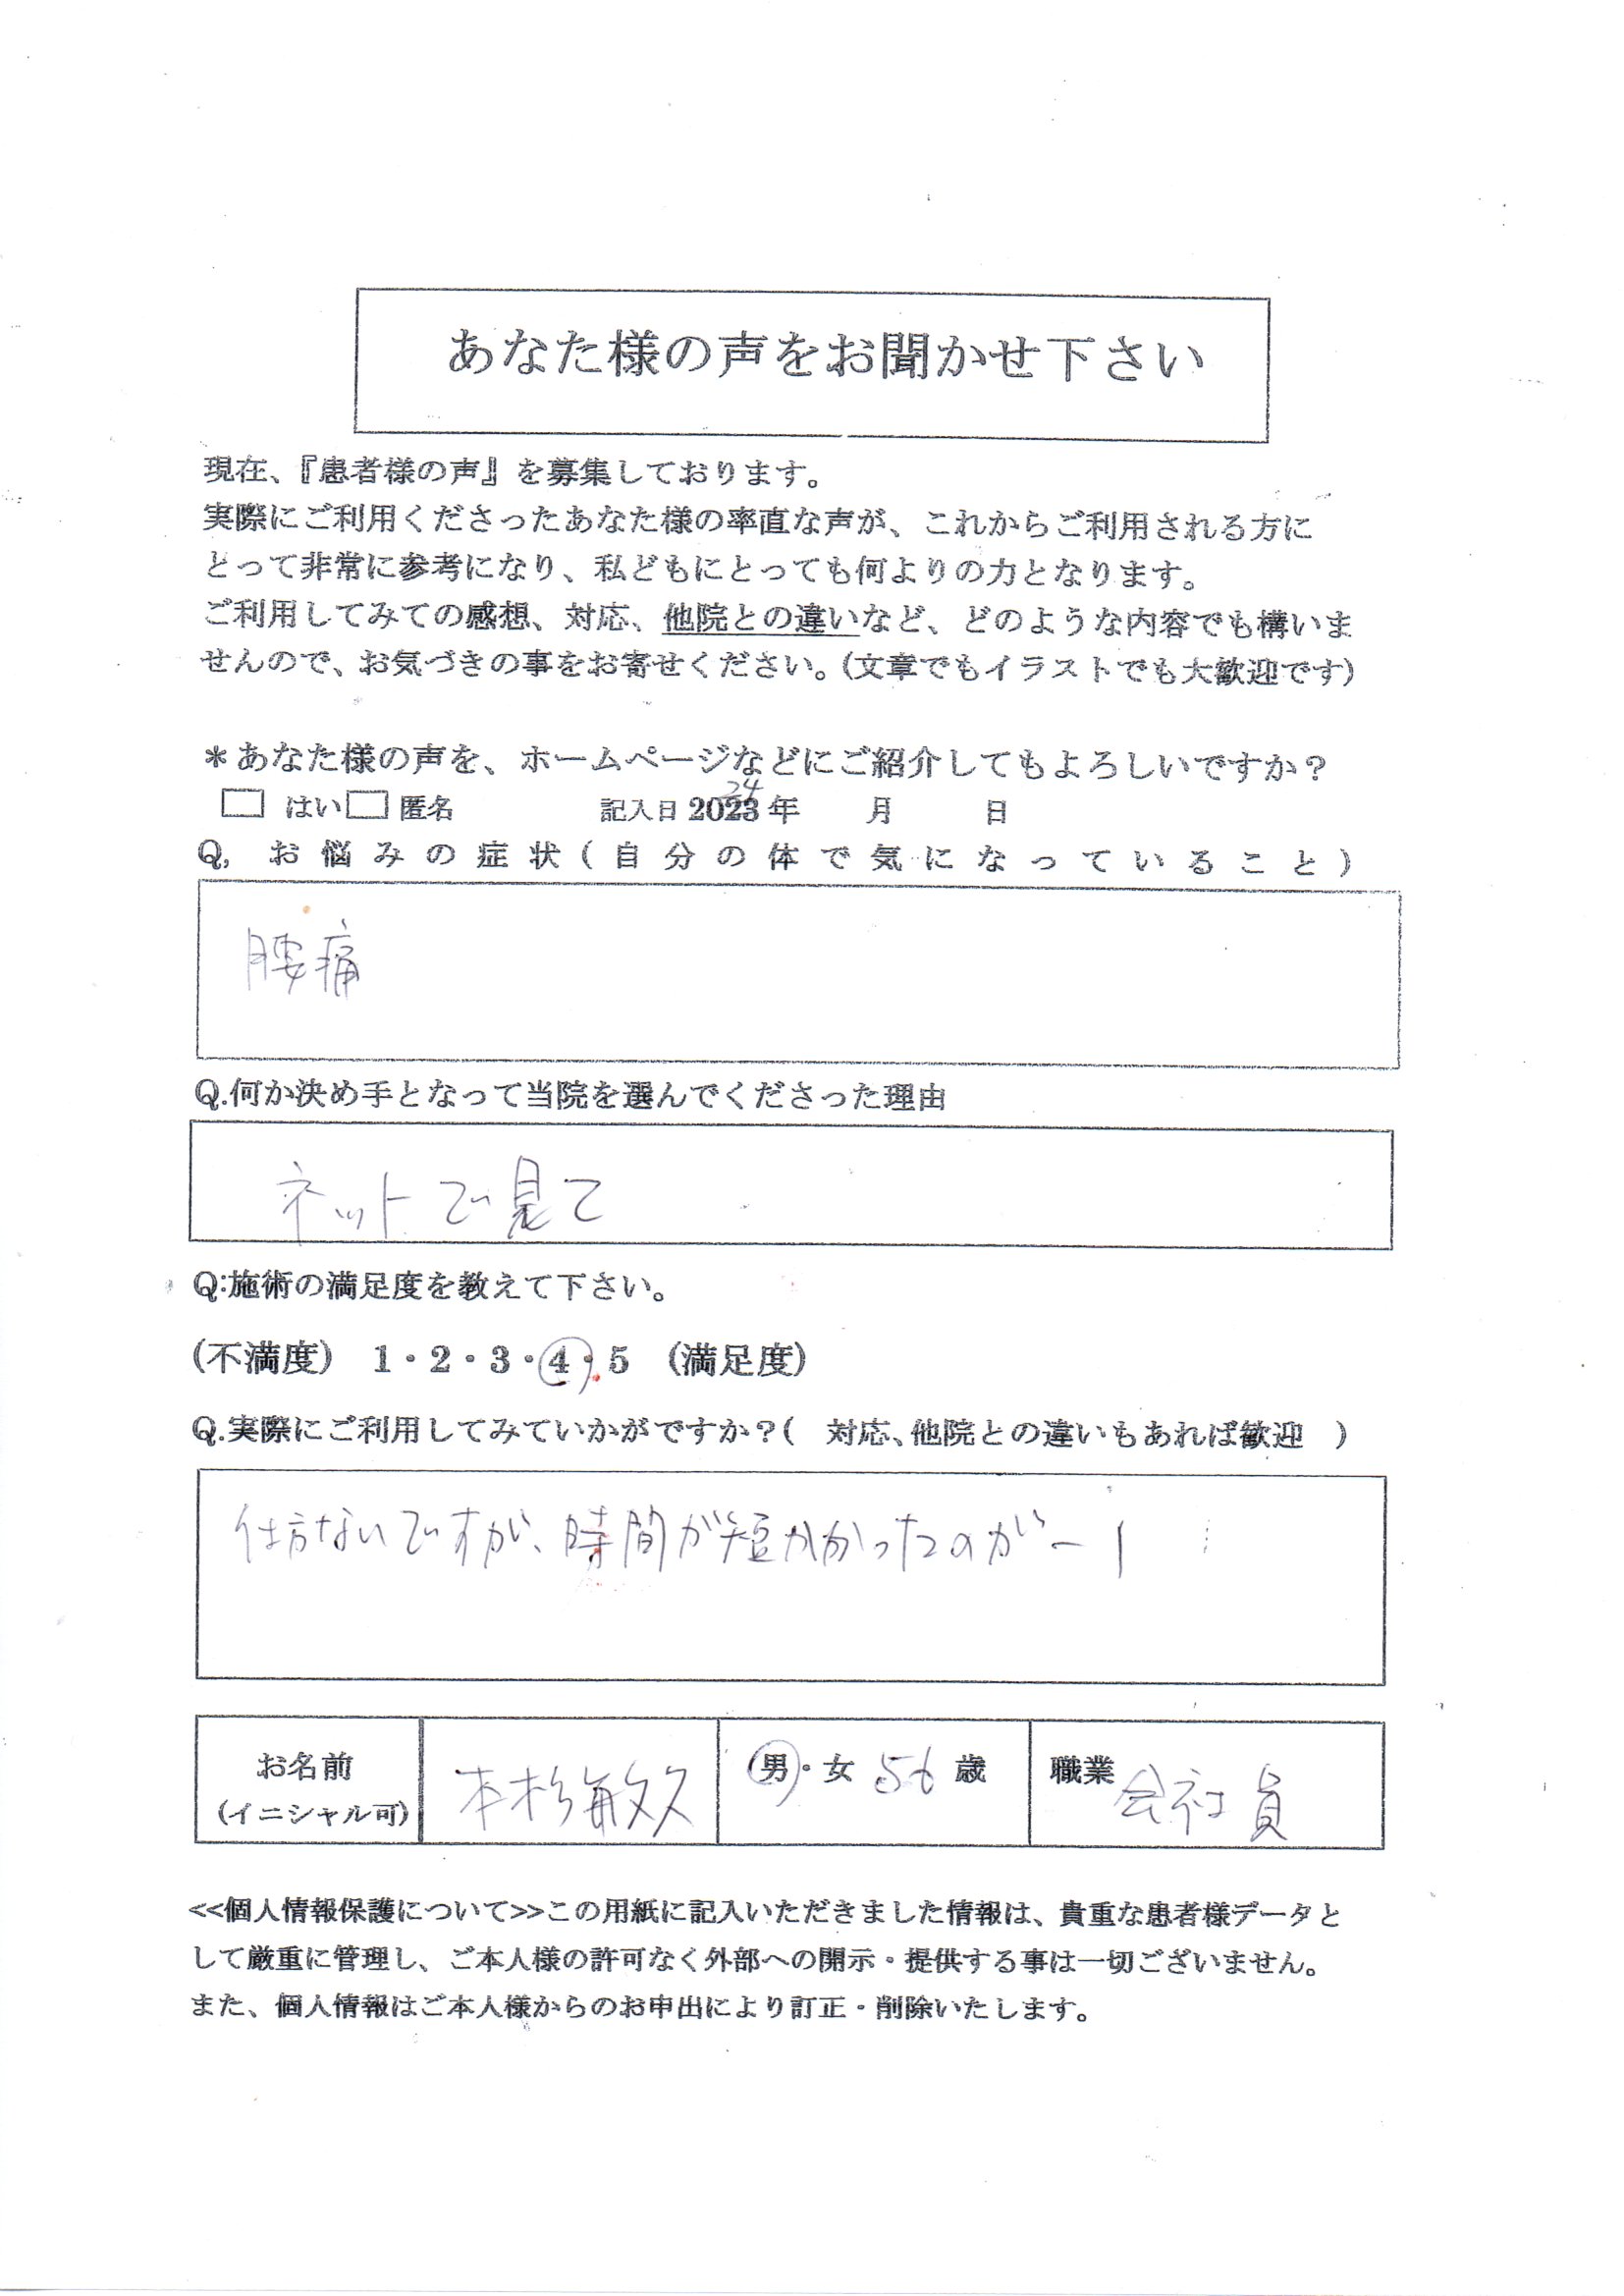 あなた様の声をお聞かせ下さい
現在、『患者様の声』を募集しております。
実際にご利用くださったあなた様の率直な声が、これからご利用される方に
とって非常に参考になり、私どもにとっても何よりの力となります。
ご利用してみての感想、対応、他院との違いなど、どのような内容でも構いま
せんので、お気づきの事をお寄せください。(文章でもイラストでも大歓迎です)
＊あなた様の声を、ホームページなどにご紹介してもよろしいですか？
24
□ はい □ 匿名 記入日 2023 年 月 日
Q, お悩みの症状(自分の体で気になっていること)
腰痛
Q.何か決め手となって当院を選んでくださった理由
ネットで見て
Q:施術の満足度を教えて下さい。
(不満度) 1・2・3・4・5 (満足度)
Q.実際にご利用してみていかがですか？( 対応、他院との違いもあれば歓迎 )
仕方ないですが、時間が短かかったのがー1
お名前 本杉敏久 男・女 56 歳 職業 会社員
(イニシャル可)
<<個人情報保護について>>この用紙に記入いただきました情報は、貴重な患者様データと
して厳重に管理し、ご本人様の許可なく外部への開示・提供する事は一切ございません。
また、個人情報はご本人様からのお申出により訂正・削除いたします。